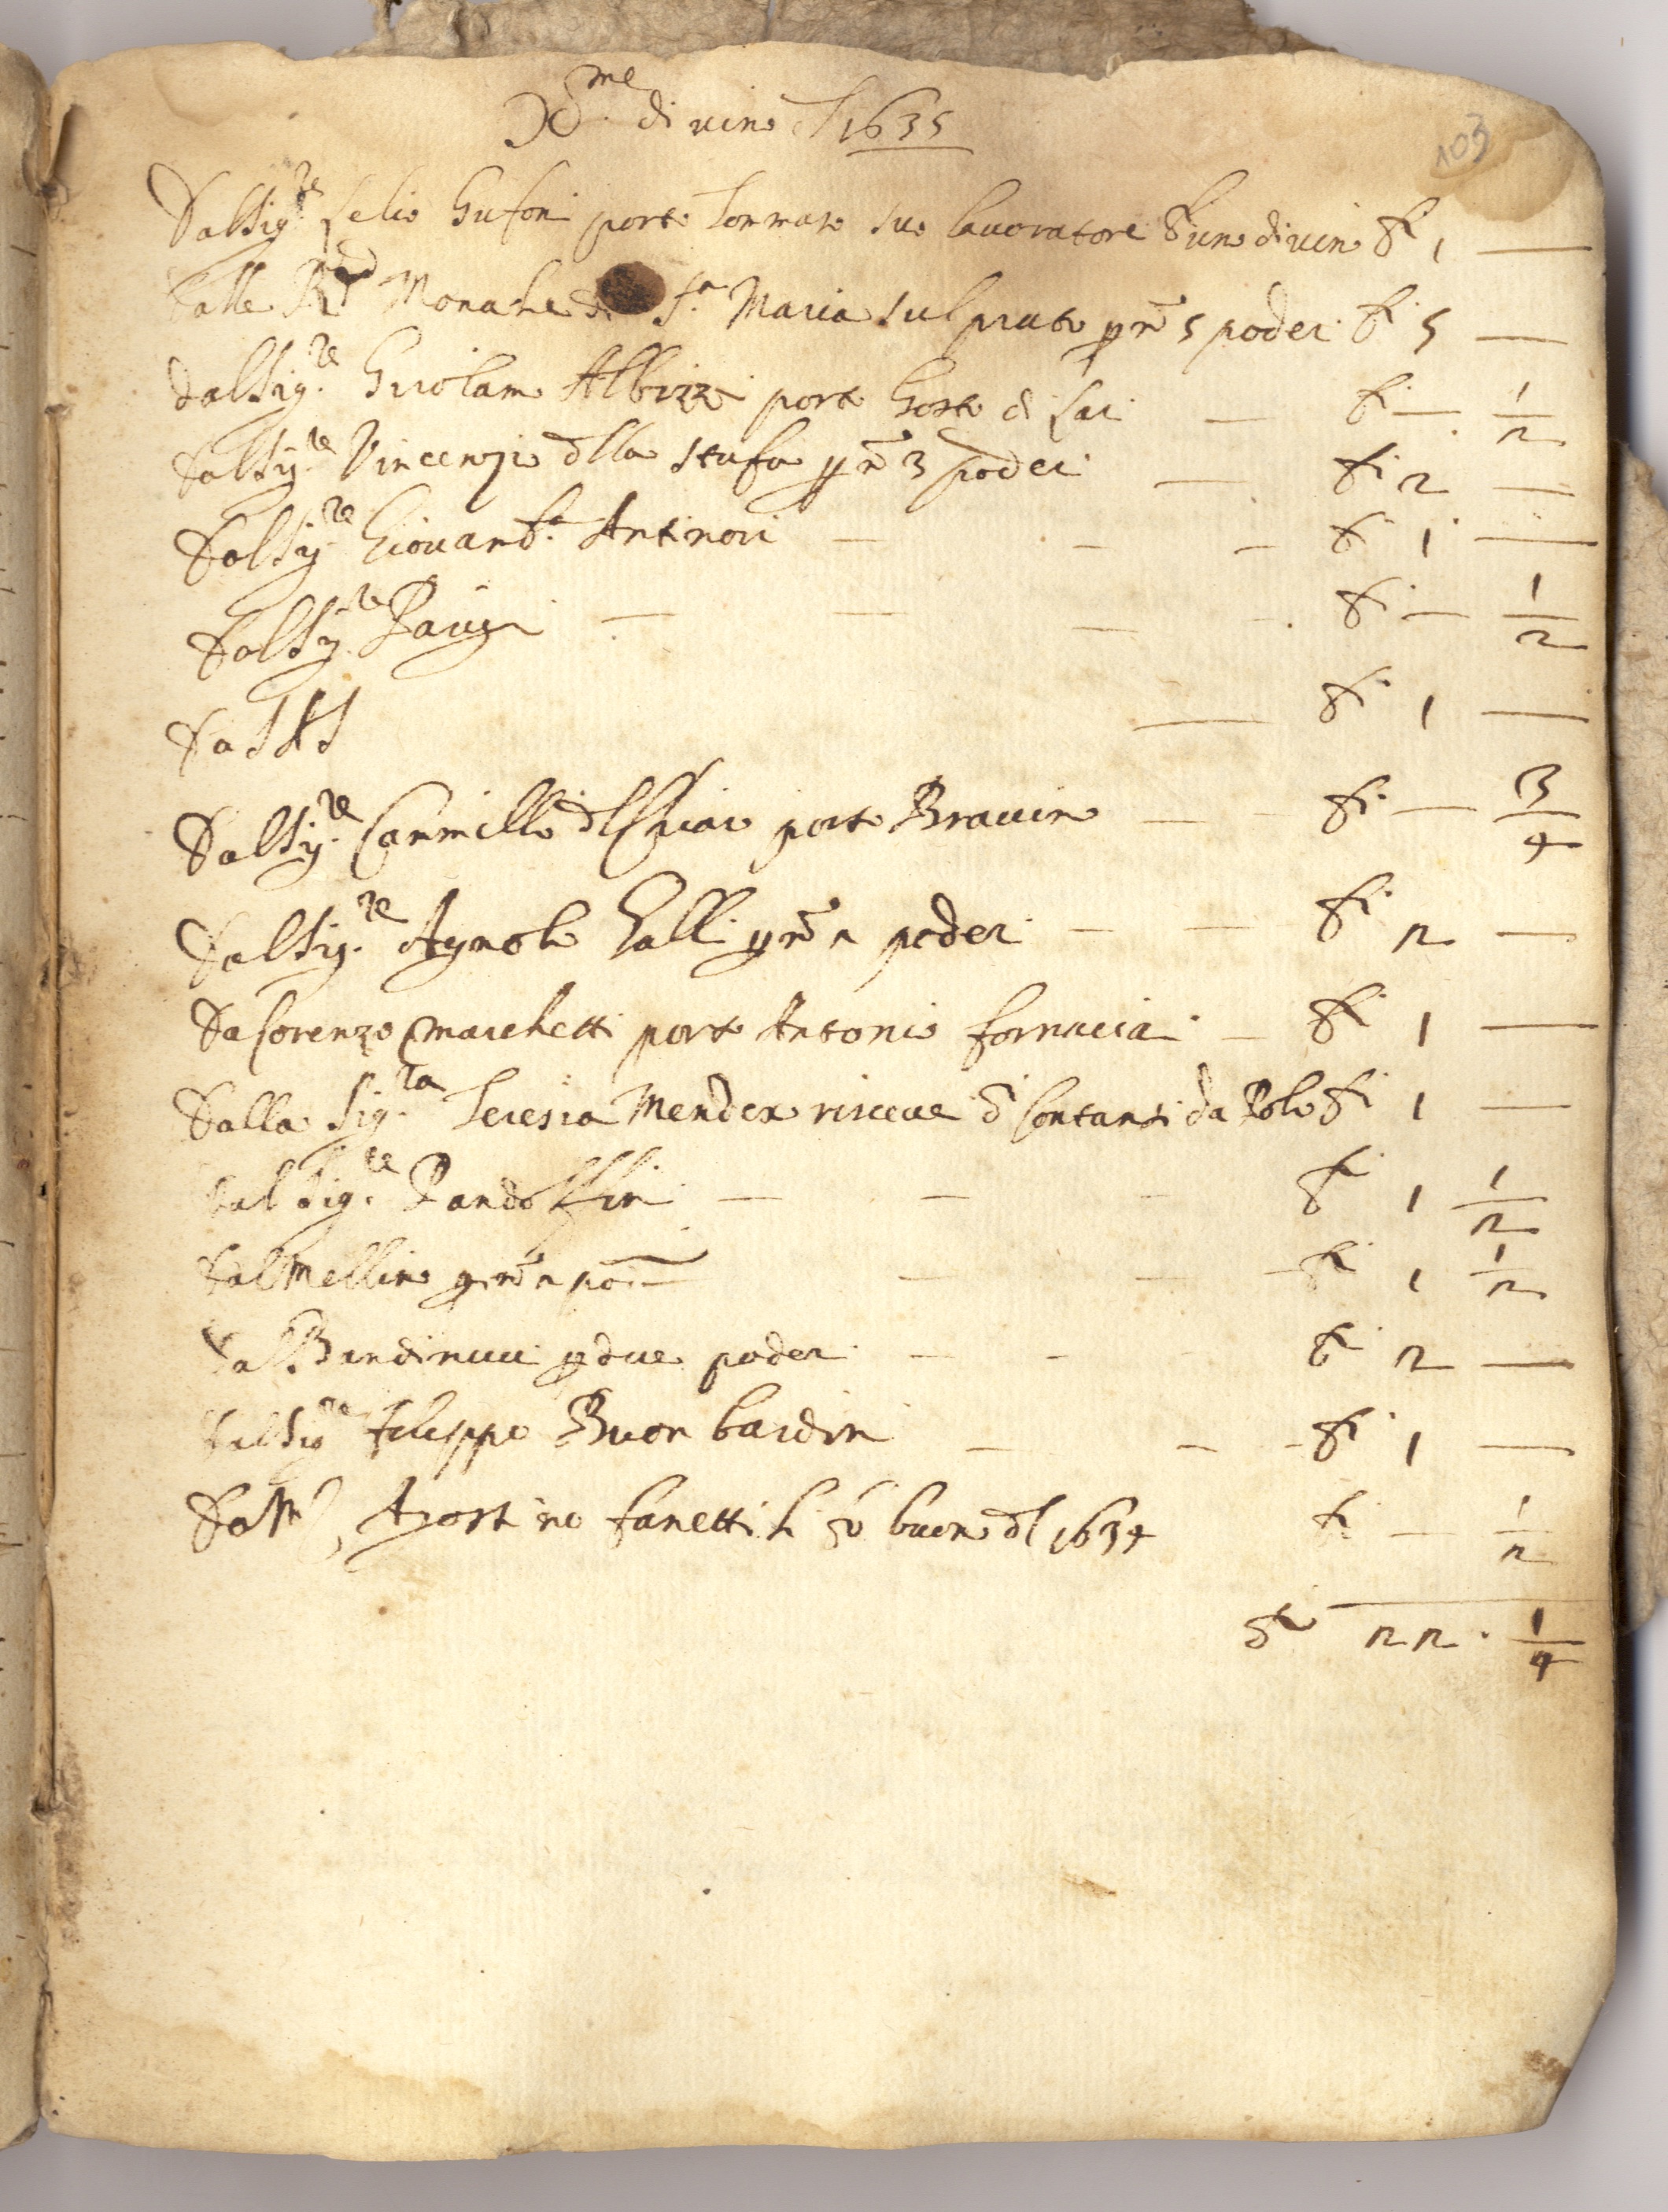 X.me di vino dl 1635
103
Dal Sig.re Lelio Gufoni portò Tommaso suo lavoratore b. uno di vino bi 1 —
Dalle R.d Monahe di S.a Maria sul prato p nō 5 poderi bi 5 —
Dal Sig.re Girolamo Albizzi portò Gosto di Lari — bi — 1/2
Dal Sig.re Vincenzio dlla Stufa p nō 3 poderi — bi 2 —
Dal Sig.re Giovanb.a Antinori — — — bi 1 —
Dal Sig.re — — — — bi — 1/2
Da — bi 1 —
Dal Sig.re Cammillo portò — — bi — 3/4
Dal Sig.re Agnolo Galli p nō 2 poderi — — bi 2 —
Da Lorenzo Marchetti portò Antonio fornaciai — bi 1 —
Dalla Sig.ra Teresia Mendex riceve di Contanti da Polo bi 1 —
Dal Sig.re Pandolfini — — — bi 1 1/2
Dal Mellino p nō 2 — — — bi 1 1/2
Da Bandinucci p due poderi — — — bi 2 —
Dal Sig.re Filippo Buon bardin — — — bi 1 —
Da M. Agostino fanetti buono dl 1634 bi — 1/2
bi 22 . 1/4